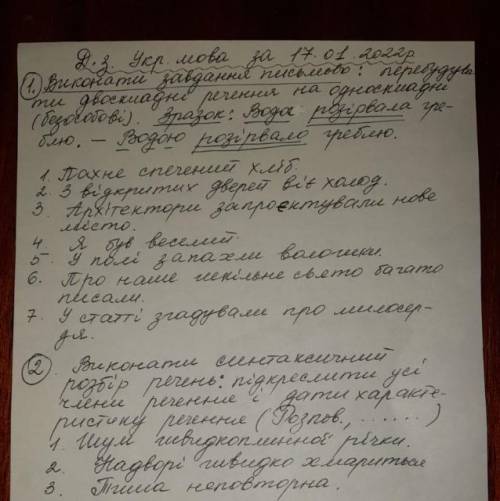 Д.з. Укр. мова за 17.01.2022р
1. Виконати завдання письмово: перебудува-
ти двоскладні речення на односкладні
(безособові). Зразок: Вода розірвала гре-
блю. – Водою розірвало греблю.
1. Пахне спечений хліб.
2. З відкритих дверей віє холод.
3. Архітектори запроєктували нове
місто.
4. Я був веселий.
5. У полі запахли волошки.
6. Про наше шкільне свято багато
писали.
7. У статті згадували про милосер-
дя.
2. Виконати синтаксичний
розбір речень: підкреслити усі
члени речення і дати характе-
ристику речення (Розпов., ......)
1. Шум швидкоплинної річки.
2. Надворі швидко хмариться
3. Тиша неповторна.